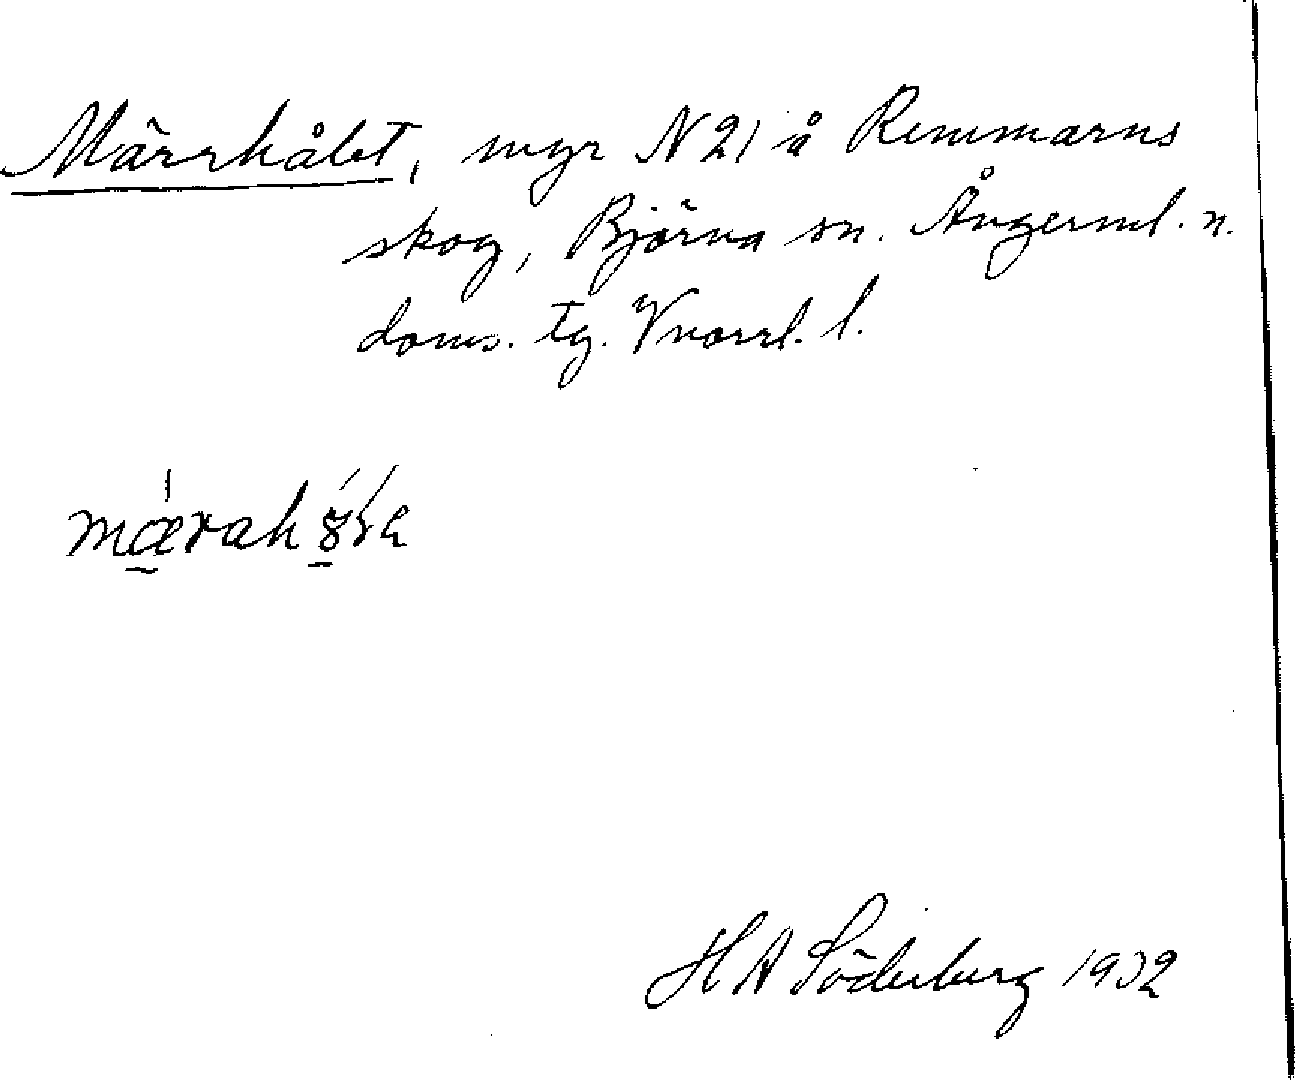 Märrhålet, myr N 21 å Remmarns
skog, Björna sn. Ångerml. n.
doms. tg. Vnorrl. l.
H A Söderberg 1932